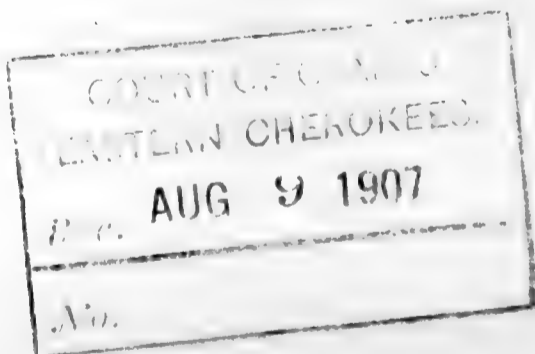 COURT OF CLAIMS
EASTERN CHEROKEES.
Rec. AUG 9 1907
No.